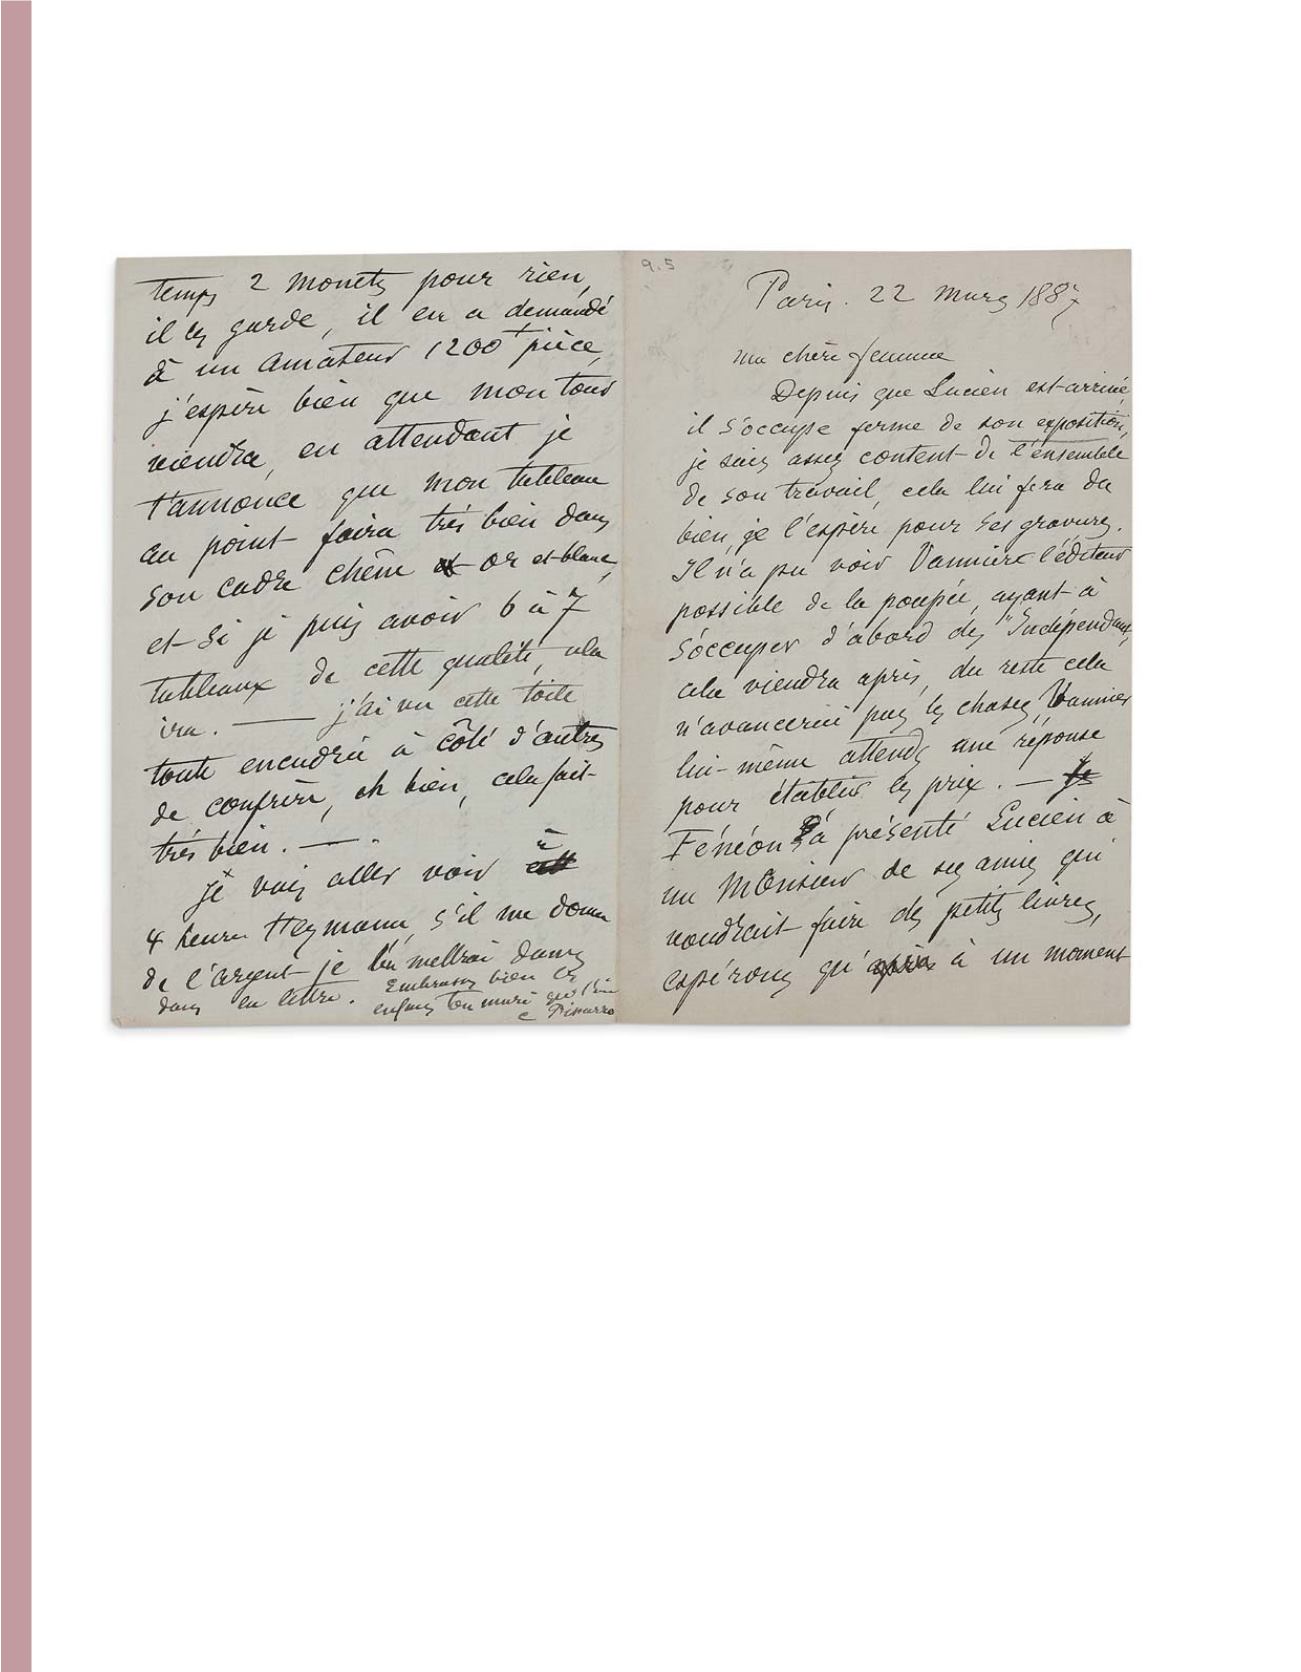 9.5
Paris. 22 Mars 1887
ma chère femme
Depuis que Lucien est arrivé,
il s'occupe ferme de son exposition,
je suis assez content de l'ensemble
de son travail, cela lui fera du
bien, je l'espère, pour ses gravures.
Il n'a pu voir Vanniere l'éditeur
possible de la poupée, ayant à
s'occuper d'abord des "Indépendants,
cela viendra après, du reste cela
n'avancerai pas les choses, Vannier
lui-même attends une réponse
pour établir les prix. — Je
Fénéon à présenté Lucien à
un Monsieur de ses amis qui
voudrait faire des petits livres,
espérons qu'après à un moment
temps 2 Monets pour rien,
il les garde, il en a demandé
à un amateur 1200 f pièce,
j'espère bien que mon tour
viendra, en attendant je
t'annonce que mon tableau
au point faira très bien dans
son cadre chêne et or et blanc,
et si je puis avoir 6 à 7
tableaux de cette qualité, cela
ira. — j'ai vu cette toile
toute encadrée à côté d'autres
de confrère, eh bien, cela fait
très bien. — .
je vais aller voir à
4 heures Heymann, s'il me donne
de l'argent je le mettrai dans
dans la lettre. Embrasse bien les
enfants ton mari qui t'aime
C Pissarro